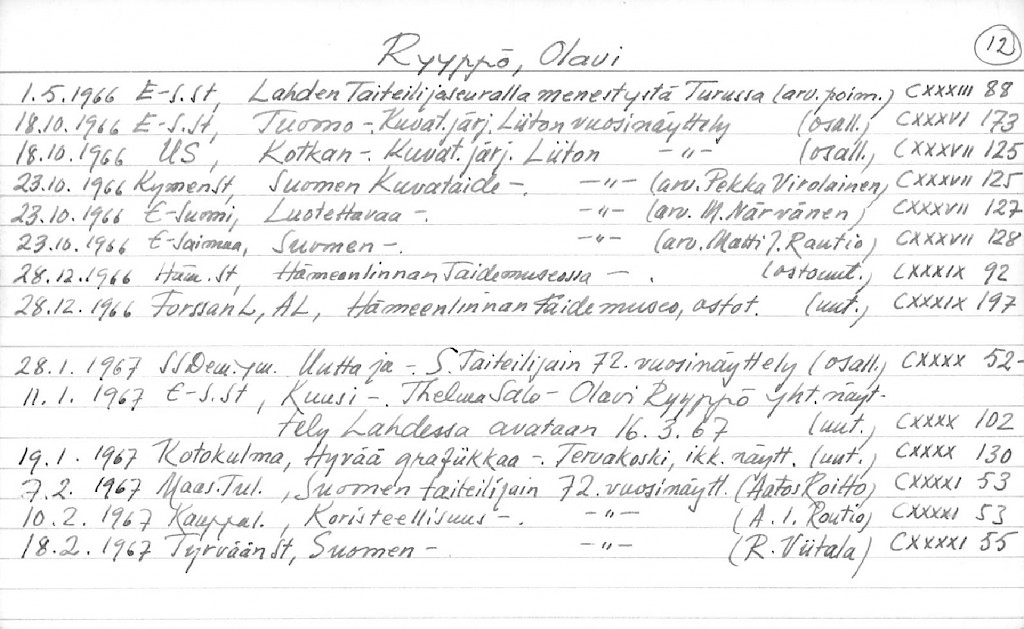 12
Ryyppö, Olavi
1.5.1966 E-S.St, Lahden Taiteilijaseuralla menestystä Turussa (arv. poim.) CXXXIII 88
18.10.1966 E-S.St, Tuomo -. Kuvat. järj. Liiton vuosinäyttely (osall.) CXXXVI 173
18.10.1966 US, Kotkan -. Kuvat. järj. Liiton -"- (osall.) CXXXVII 125
23.10.1966 Kymenst, Suomen Kuvataide -. -"- (arv. Pekka Virolainen) CXXXVII 125
23.10.1966 E-Suomi, Luotettavaa -. -"- (arv. M. Närvänen) CXXXVII 127
23.10.1966 E-Saimaa, Suomen -. -"- (arv. Matti J. Rautio) CXXXVII 128
28.12.1966 Häm. St, Hämeenlinnan Taidemuseossa -. (ostouut.) CXXXIX 92
28.12.1966 Forssan L, AL, Hämeenlinnan taidemuseo, ostot. (uut.) CXXXIX 197
28.1.1967 SSDem. ym. Uutta ja -. S. Taiteilijain 72. vuosinäyttely (osall.) CXXXX 52-
11.1.1967 E-S.St, Kuusi -. Thelma Salo - Olavi Ryyppö yht. näyt-
tely Lahdessa avataan 16.3.67 (uut.) CXXXX 102
19.1.1967 Kotokulma, Hyvää grafiikkaa -. Tervakoski, ikk. näytt. (uut.) CXXXX 130
7.2.1967 Maas. Tul., Suomen taiteilijain 72. vuosinäytt. (Aatos Koitto) CXXXXI 53
10.2.1967 Kauppal., Koristeellisuus -. -"- (A. I. Routio) CXXXXI 53
18.2.1967 Tyrvään St, Suomen -. -"- (R. Viitala) CXXXXI 55